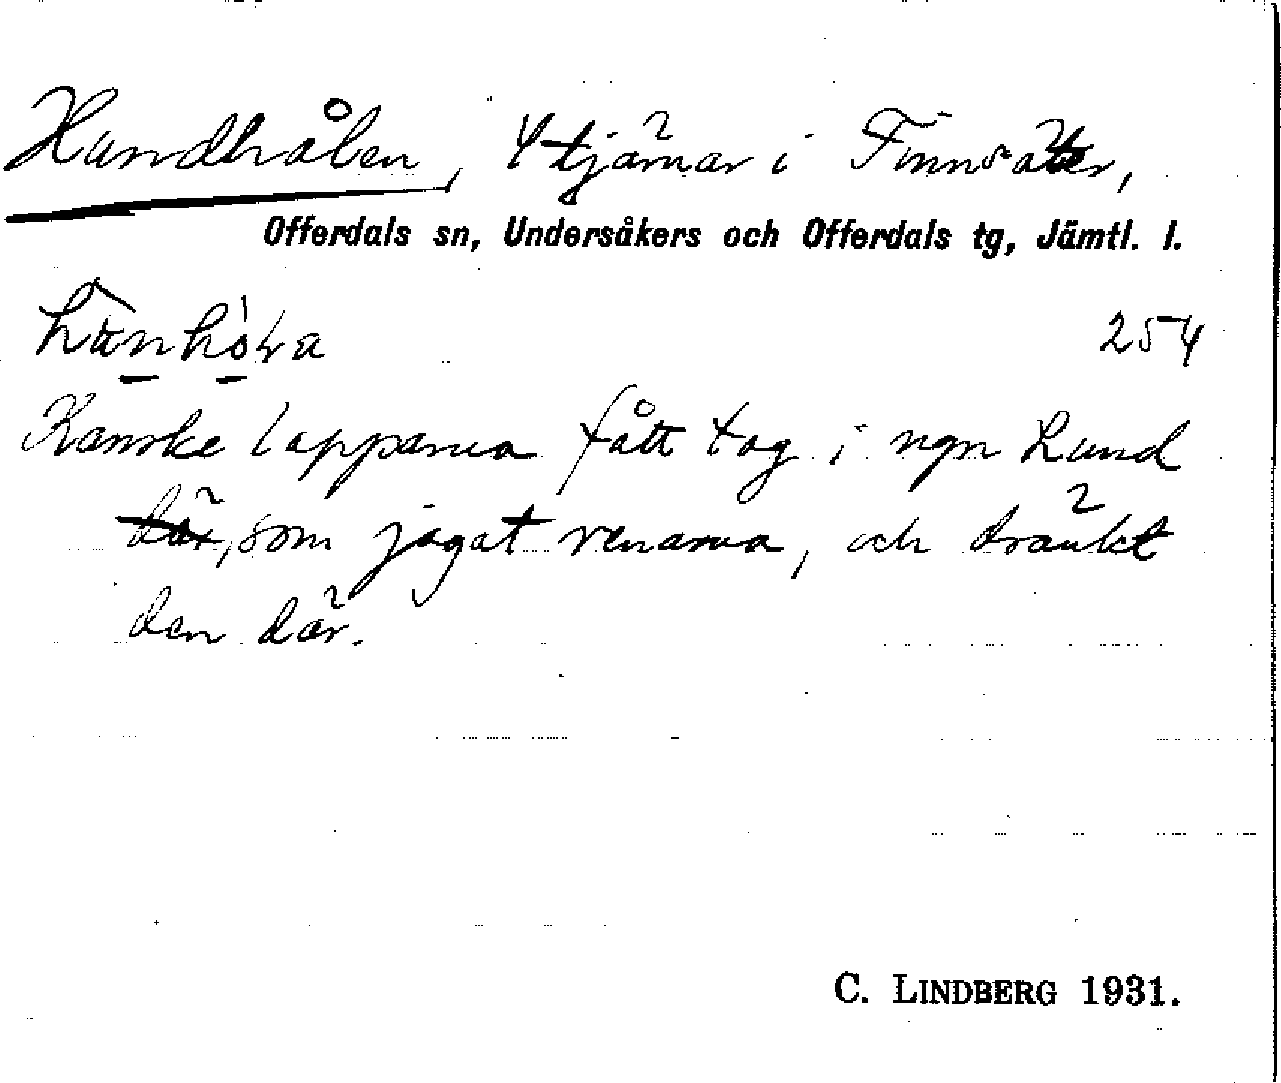 Hundhålen, 4 tjärnar i Finnsäter,
Offerdals sn, Undersåkers och Offerdals tg, Jämtl. l.
254
Kanske lapparna fått tag i ngn hund
där, som jagat renarna, och dränkt
den där.
C. LINDBERG 1931.